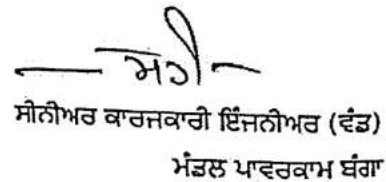 — ਸਹੀ —
ਸੀਨੀਅਰ ਕਾਰਜਕਾਰੀ ਇੰਜਨੀਅਰ (ਵੰਡ)
ਮੰਡਲ ਪਾਵਰਕਾਮ ਬੰਗਾ